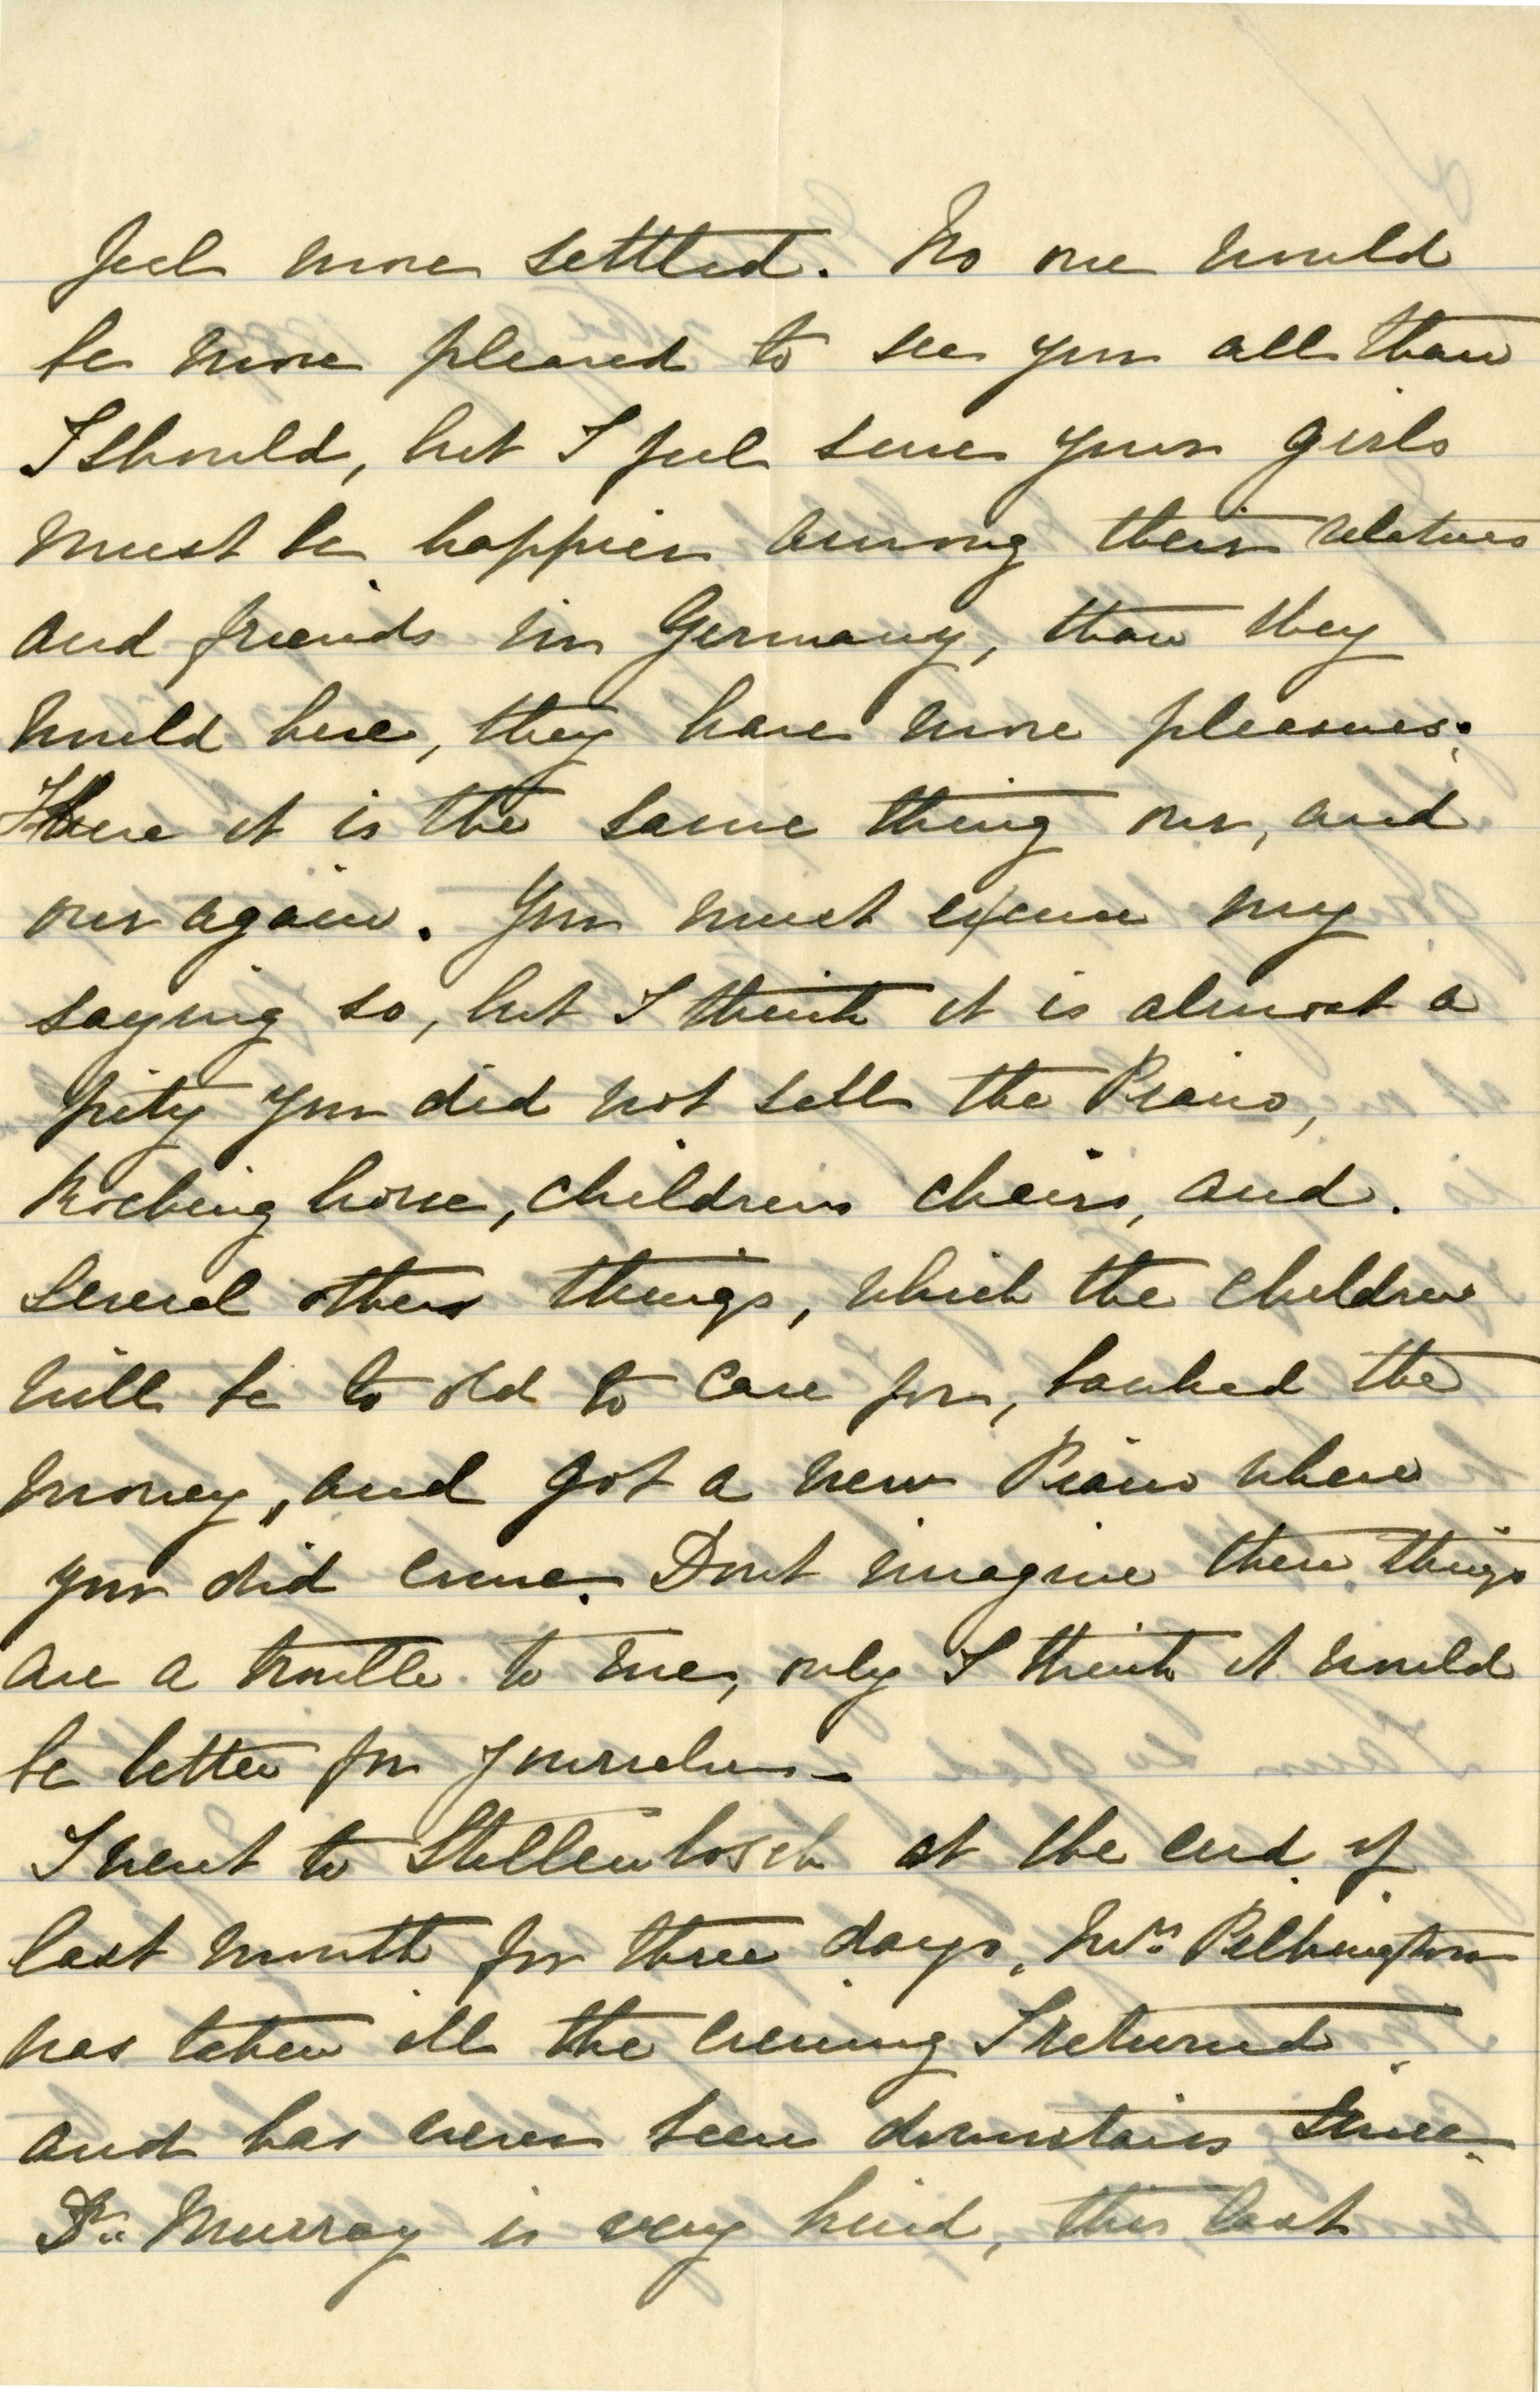 feel more settled. No one would
be more pleased to see you all than
I should, but I feel sure your girls
must be happier among their relatives
and friends in Germany, than they
would here, they have more pleasures.
Here it is the same thing over, and
over again. You must excuse my
saying so, but I think it is almost a
pity you did not sell the Piano,
Rocking horse, childrens chairs, and
several other things, which the children
will be to old to care for, banked the
money, and got a new Piano when
you did come. Dont imagine these things
are a trouble to me, only I think it would
be better for yourselves—
I went to Stellenbosch at the end of
last month for three days, Mrs. Pilkington
was taken ill the evening I returned
and has never been downstairs since.
Dr. Murray is very kind, this last